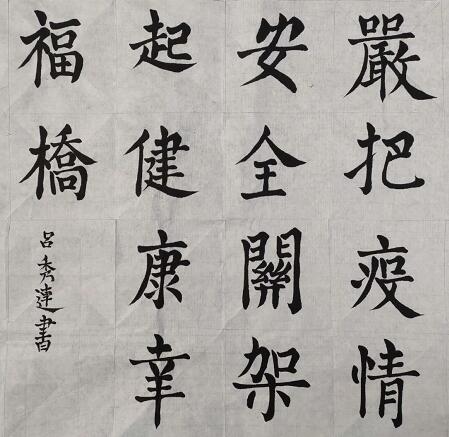 嚴把疫情
安全關架
起健康幸
福橋
呂秀連書